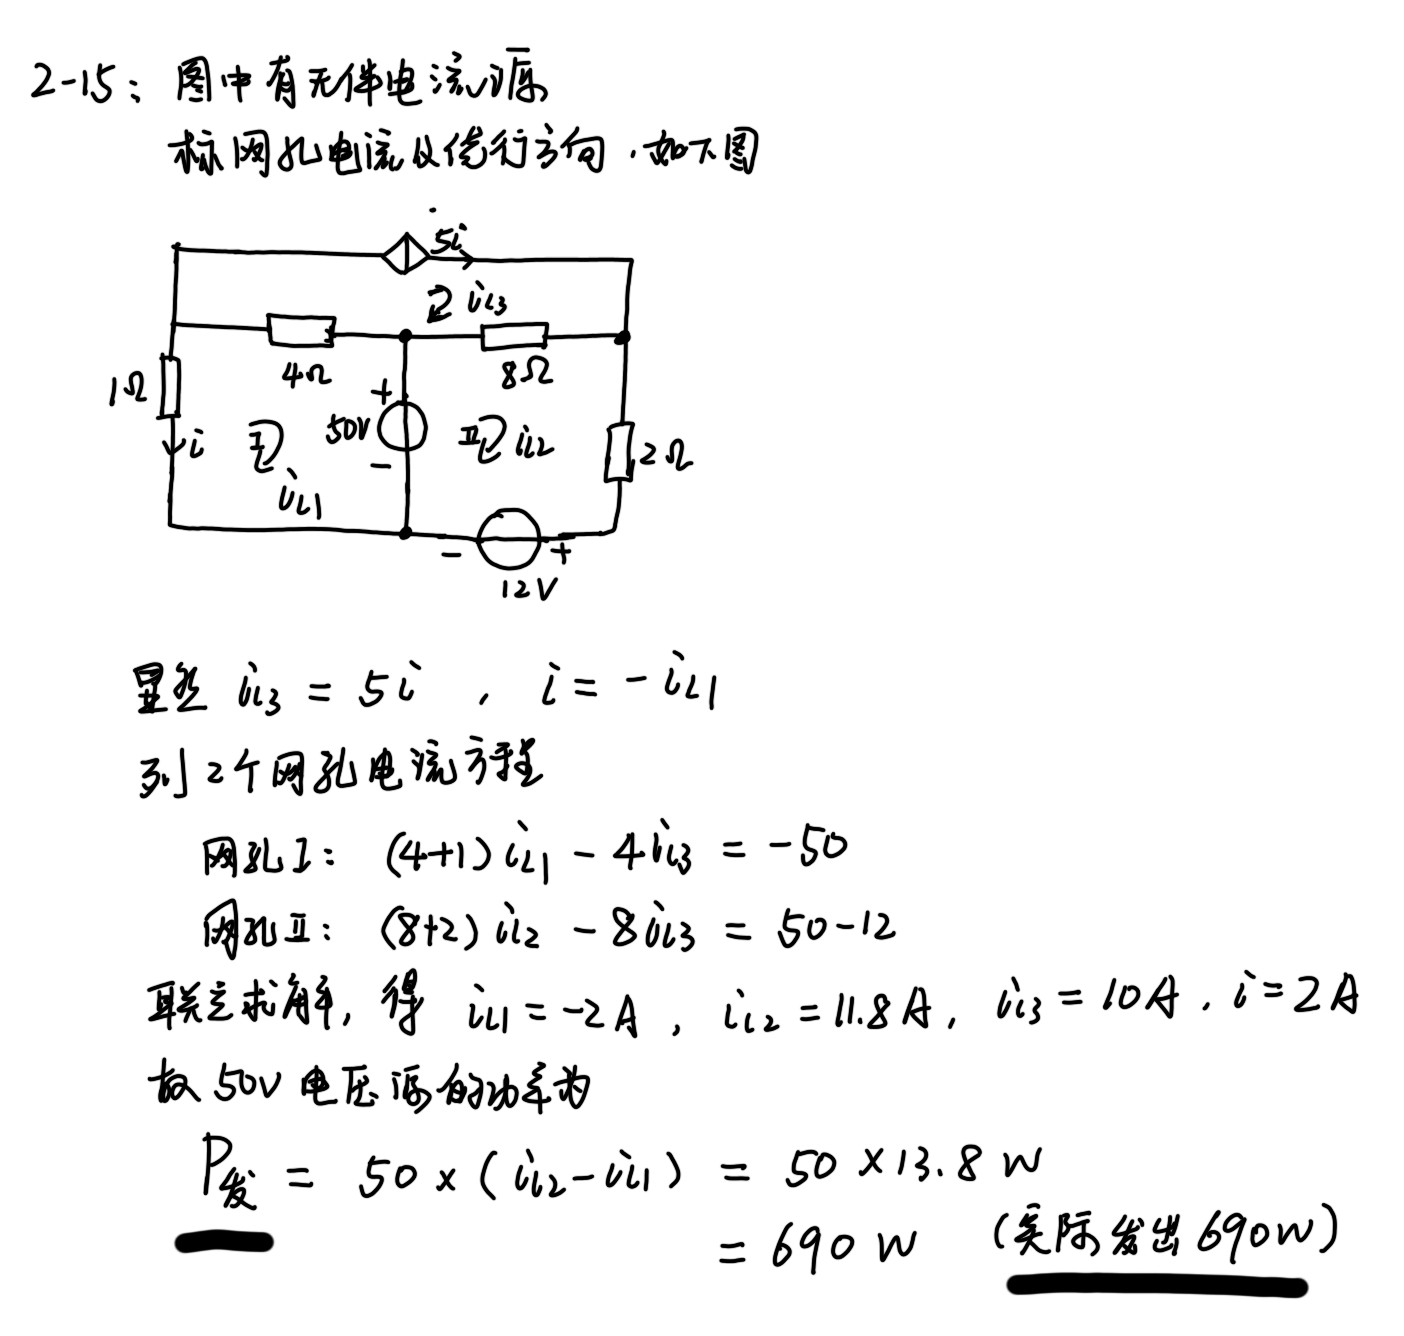 2-15: 图中有无伴电流源
标网孔电流及绕行方向.如下图
5i
iL3
4Ω
8Ω
1Ω
i
I
iL1
+
50V
-
II iL2
2Ω
- +
12V
显然 iL3 = 5i , i = -iL1
列2个网孔电流方程
网孔I: (4+1)iL1 - 4iL3 = -50
网孔II: (8+2)iL2 - 8iL3 = 50-12
联立求解, 得 iL1 = -2A , iL2 = 11.8A , iL3 = 10A . i = 2A
故 50V 电压源的功率为
P发 = 50 × (iL2 - iL1) = 50 × 13.8 W
= 690 W (实际发出 690W)